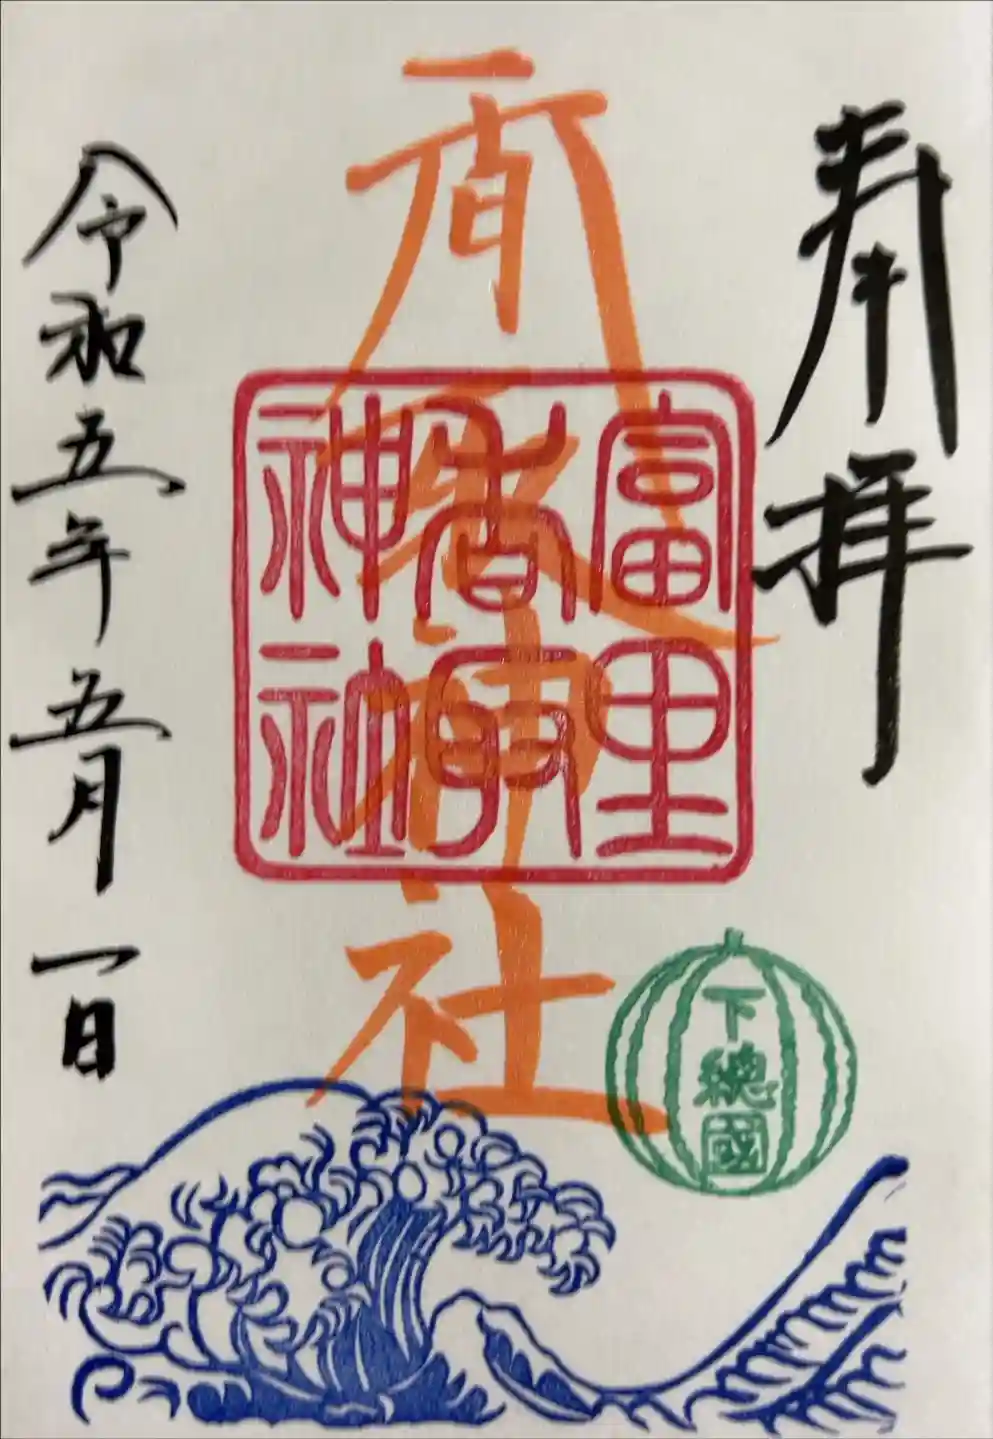 奉拝
神社
富里
香取
神社
下總國
令和五年五月一日